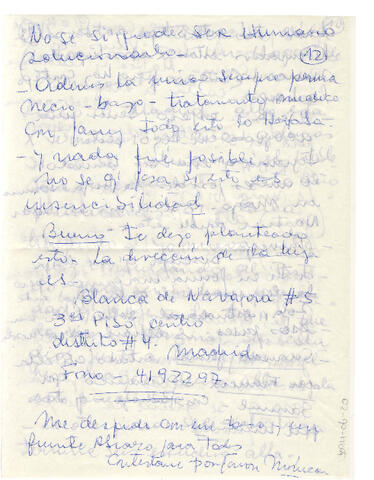 No se si podra ser Humano
solucionarlo
(12)
- Ademas la niña siempre perma
necio - bajo - tratamiento medico
Con Jany todo esto lo
- y nada fue posible
no se q pasa si esto es
insencibilidad
Bueno - te dejo planteado
esto - la dirección de la
es -
Blanca de Navarra # 5
3er Piso centro
distrito # 4.
Madrid
Fono - 4192297
Me despido con un
fuerte Abrazo para todos
Contestame por favor